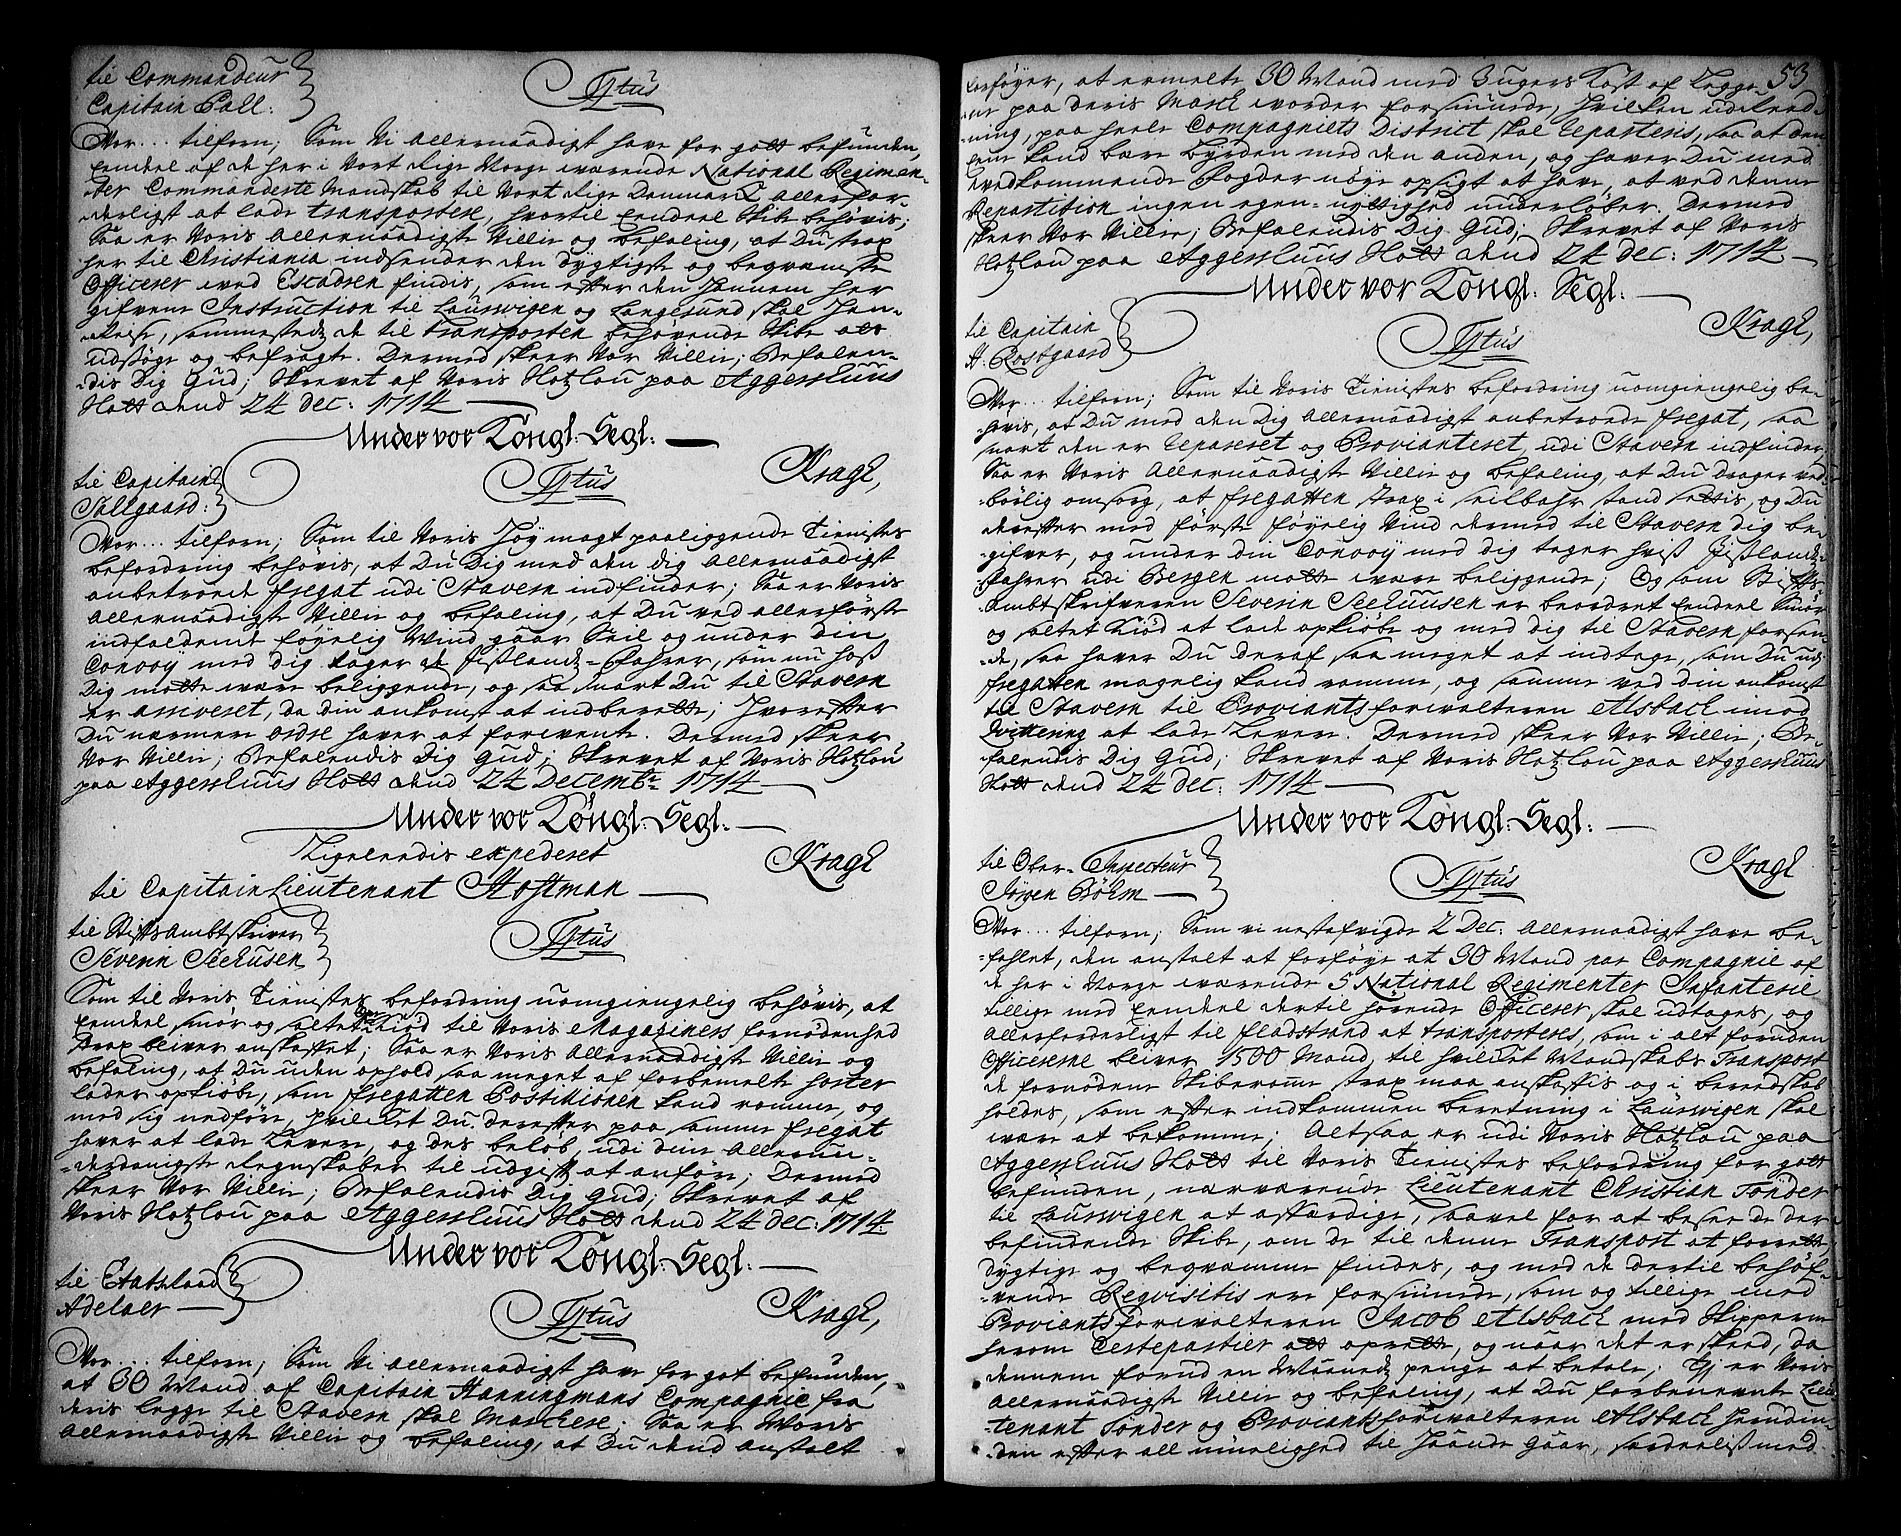 til Commandeur
Capitain Pall:
Tjtus
Vor... tilforn; Som Vi Allernaadigst have for gott befunden,
Eendeel af de her i Vort Rige Norge værende National Regimen-
ter Commanderte Mandskab til Vort Rige Danmark allerfor-
derligst at lade transportere, hvortil Eendeel Skibe behøvis;
Saa er Voris Allernaadigste Villie og befaling, at Du strax
her til Christiania indsender den dygtigste og beqvæmste
Officerer ved Escadren findis, som efter den hannem her
gifvene Instruction til Laurwigen og Langesund skal hen-
reise, sammesteds de til transporten behøvende Skibe at
udsøge og befragte. Dermed skeer Vor Villie; Befalen-
dis Dig Gud; Skrevet af Voris Hotzlou paa Aggershuus
Slott dend 24 dec: 1714
Under vor Kongl: Segl:
Kragh,
til Capitain
Tallgaard:
Tjtus
Vor... tilforn; Som til Voris høy magt paaliggende Tienistes
befordring behøvis, at Du Dig med den dig Allernaadigst
anbetroede fregat udi Stavern indfinder; Saa er Voris
Allernaadigste Villie og befaling, at Du ved allerførste
indfaldende føyelig Wind gaar Seil og under din
Convoy med dig tager de Jißlandz-Fahrer, som nu hoß
Dig motte være beliggende, og saa snart Du til Stavern
er arriveret, da din ankomst at indberette; Hvorefter
Du nærmere ordre haver at forvente. Dermed skeer
Vor Villie; Befalendis Dig Gud; Skrevet af Voris Hotzlou
paa Aggershuus Slott dend 24 Decembr: 1714
Under vor Kongl: Segl:
Kragh
Ligeleedis expederet
til Capitain Lieutenant Stoftman
til Stiftsambtskriver
Severin Seehusen
Tjtus
Som til Voris Tienistes befordring uomgiengelig behøvis, at
Eendeel smør og saltet Kiød til Voris Magaziners fornødenhed
strax bliver anskaffet; Saa er Voris Allernaadigste Villie og
befaling, at Du uden ophold saa meget af forbemelte sorter
lader opkiøbe, som fregatten Postilionen kand romme, og
med sig nedføre, hvilcket Du derefter paa samme fregat
haver at lade Levere, og des beløb udi dine Allerun-
derdanigste Regnskaber til udgift at anføre; Dermed
skeer Vor Villie; Befalendis Dig Gud; Skrevet af
Voris Hotzlou paa Aggershuus Slott dend 24 dec: 1714
Under vor Kongl: Segl:
Kragh,
til Etatzraad
Adelaer
Tjtus
Vor... tilforn; Som Vi Allernaadigst have for got befunden,
at 30 Mand af Capitain Hanningmans Compagnie fra
deris Legge til Stavern skal Marchere; Saa er Woris
Allernaadigste Villie og befaling, at Du dend anstalt
53
forføyer, at ermelte 30 Mand med 3 ugers Kost af Legge-
ne paa deris March vorder forsiunede, hvilken udreed-
ning, paa heele Compagniets District skal reparteris, saa at den
eene kand bære byrden med den anden, og haver Du med
vedkommende Fogder nøye opsigt at have, at ved denne
Repartition ingen egen-nyttighed underløber. Dermed
skeer Vor Villie; Befalendis Dig Gud; Skrevet af Voris
Hotzlou paa Aggershuus Slott dend 24 dec: 1714
Under vor Kongl: Segl:
Kragh,
til Capitain
H. Rostgaard
Tjtus
Vor... tilforn; Som til Voris Tienistes befordring uomgiengelig be-
høvis, at Du med den Dig Allernaadigst anbetroede fregat, saa
snart den er repareret og Provianteret, udi Stavern indfinder;
Saa er Voris Allernaadigste Villie og befaling, at Du drager ved-
børlig omsorg, at fregatten strax i seilbahr stand settis, og Du
derefter med første føyelig Vind dermed til Stavern dig be-
gifver, og under din Convoy med dig tager hviß Jißlandz-
Fahrer udi Bergen motte være beliggende; Og som Stifts
Ambtskrifveren Severin Seehuusen er beordret Eendeel Smør
og saltet Kiød at lade opkiøbe og med dig til Stavern forsen-
de, saa haver Du deraf saa meget at indtage, som Du udi
fregatten magelig kand romme, og samme ved din ankomst
til Stavern til Proviantsforvalteren Alsbach imod
Qvittering at lade Levere. Dermed skeer Vor Villie; Be-
falendis Dig Gud; Skrevet af Voris Hotzlou paa Aggershuus
Slott dend 24 dec: 1714
Under vor Kongl: Segl:
Kragh
til Ober-Inspecteur
Jørgen Bøhm
Tjtus
Vor... tilforn; Som vi nestafvigte 2 Dec: Allernaadigst have be-
fahlet, den anstalt at forføye at 30 Mand par Compagnie af
de her i Norge værende 5 National Regimenter Infanterie
tillige med Eendeel dertil hørende Officerer skal udtages, og
Allerforderligst til fladstrand at transporteres, som i alt foruden
Officererne bliver 1500 Mand, til hvilcket Mandskabs Transport
de fornødene Skiberomme strax maa anskaffis og i beredskab
holdes, som efter indkommen beretning i Laurwigen skal
være at bekomme; Altsaa er udi Voris Hotzlou paa
Aggershuus Slott til Voris Tienistes befordring for gott
befunden, nærværende Lieutenant Christian Tønder
til Laurwigen at affærdige, saavel for at besee de der
befindende Skibe, om de til denne Transport at forrette,
dygtige og beqvæmme findes, og med de dertil behøf-
vende Reqvisitis ere forsiunede, som og tillige med
Proviantsforvalteren Jacob Alsbach med Skipperne
herom Certepartier at oprette, og naar det er skeed, da
dennem forud en Maaneds penge at betale; Thj er Voris
Allernaadigste Villie og befaling, at Du forbenevnte Lieu-
tenant Tønder og Proviantsforvalteren Alsbach herudin-
den efter all muelighed til haande gaar, særdeeliß med